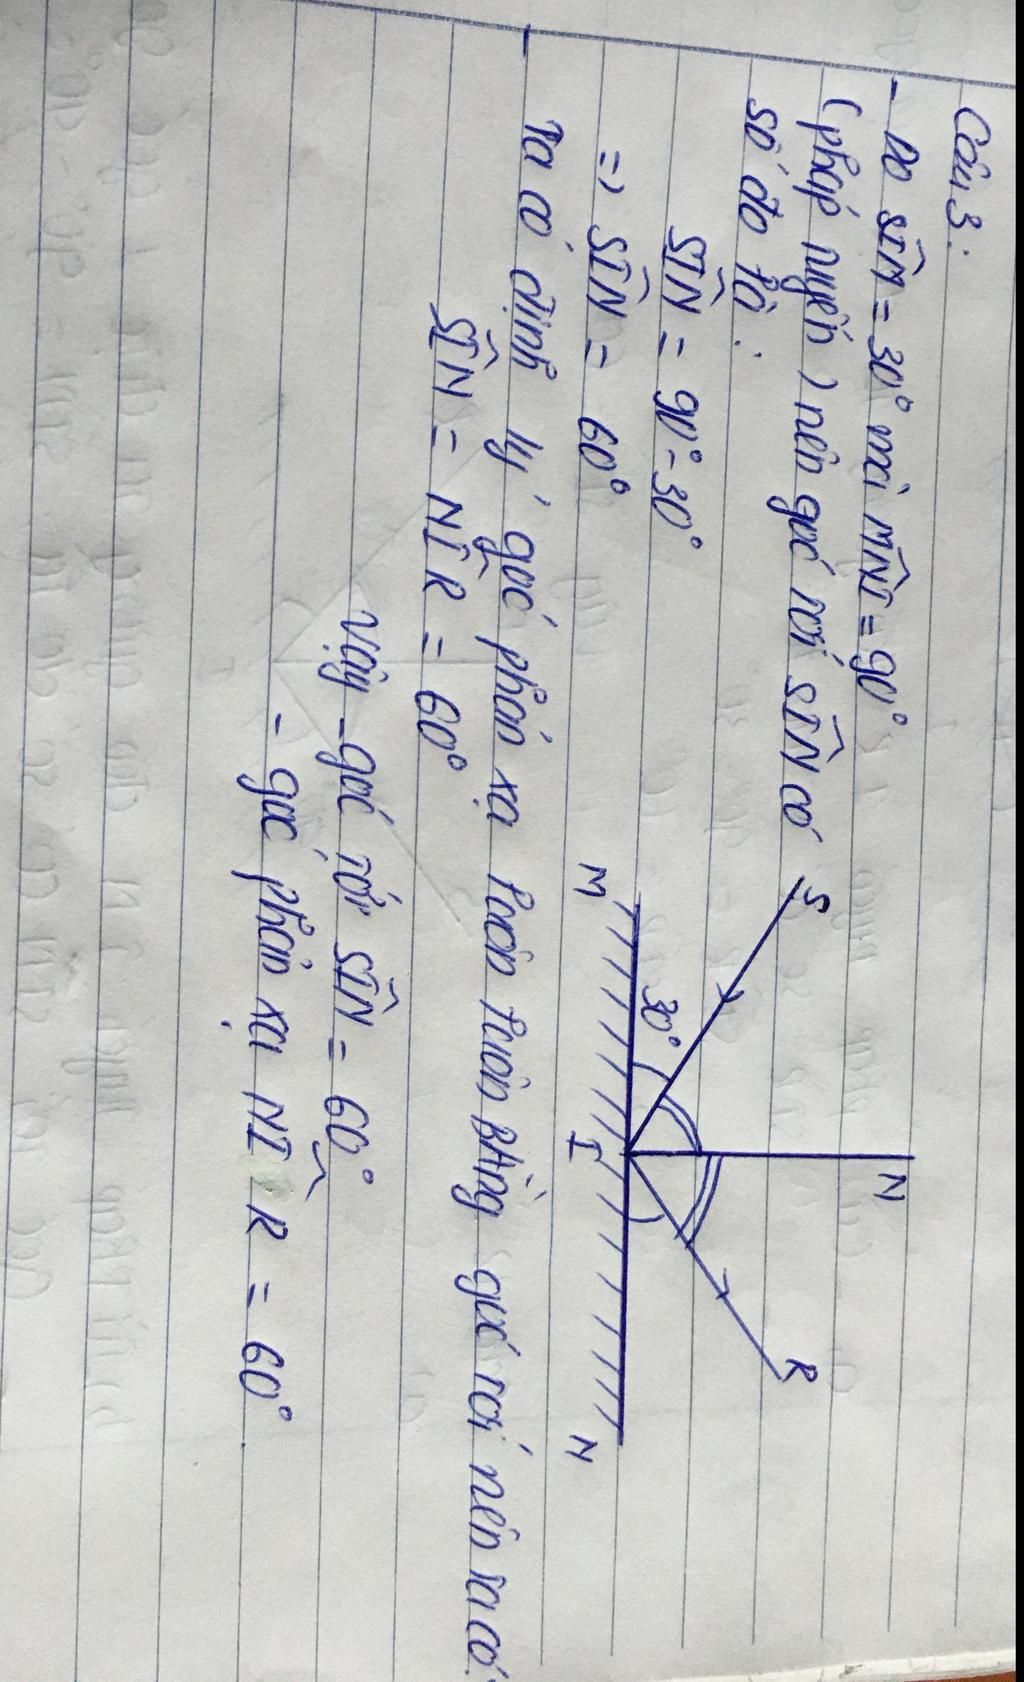 Câu 3:
- Do SÎM = 30° mà MNÎ = 90°
(pháp tuyến) nên góc tới SÎN có
số đo là:
SÎN = 90° - 30°
=> SÎN = 60°
- Ta có định lý góc phản xạ luôn luôn bằng góc tới nên ta có:
SÎN = NÎR = 60°
Vậy - góc tới SÎN = 60°
- góc phản xạ NÎR = 60°
S
N
R
30°
M
I
N